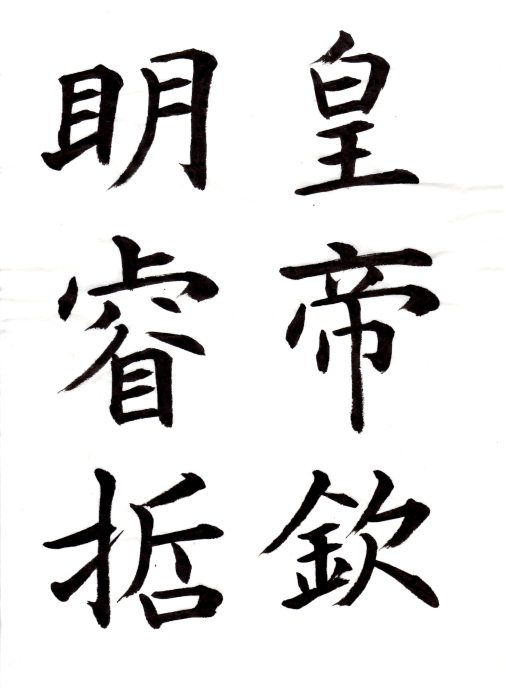 皇帝欽
明睿哲